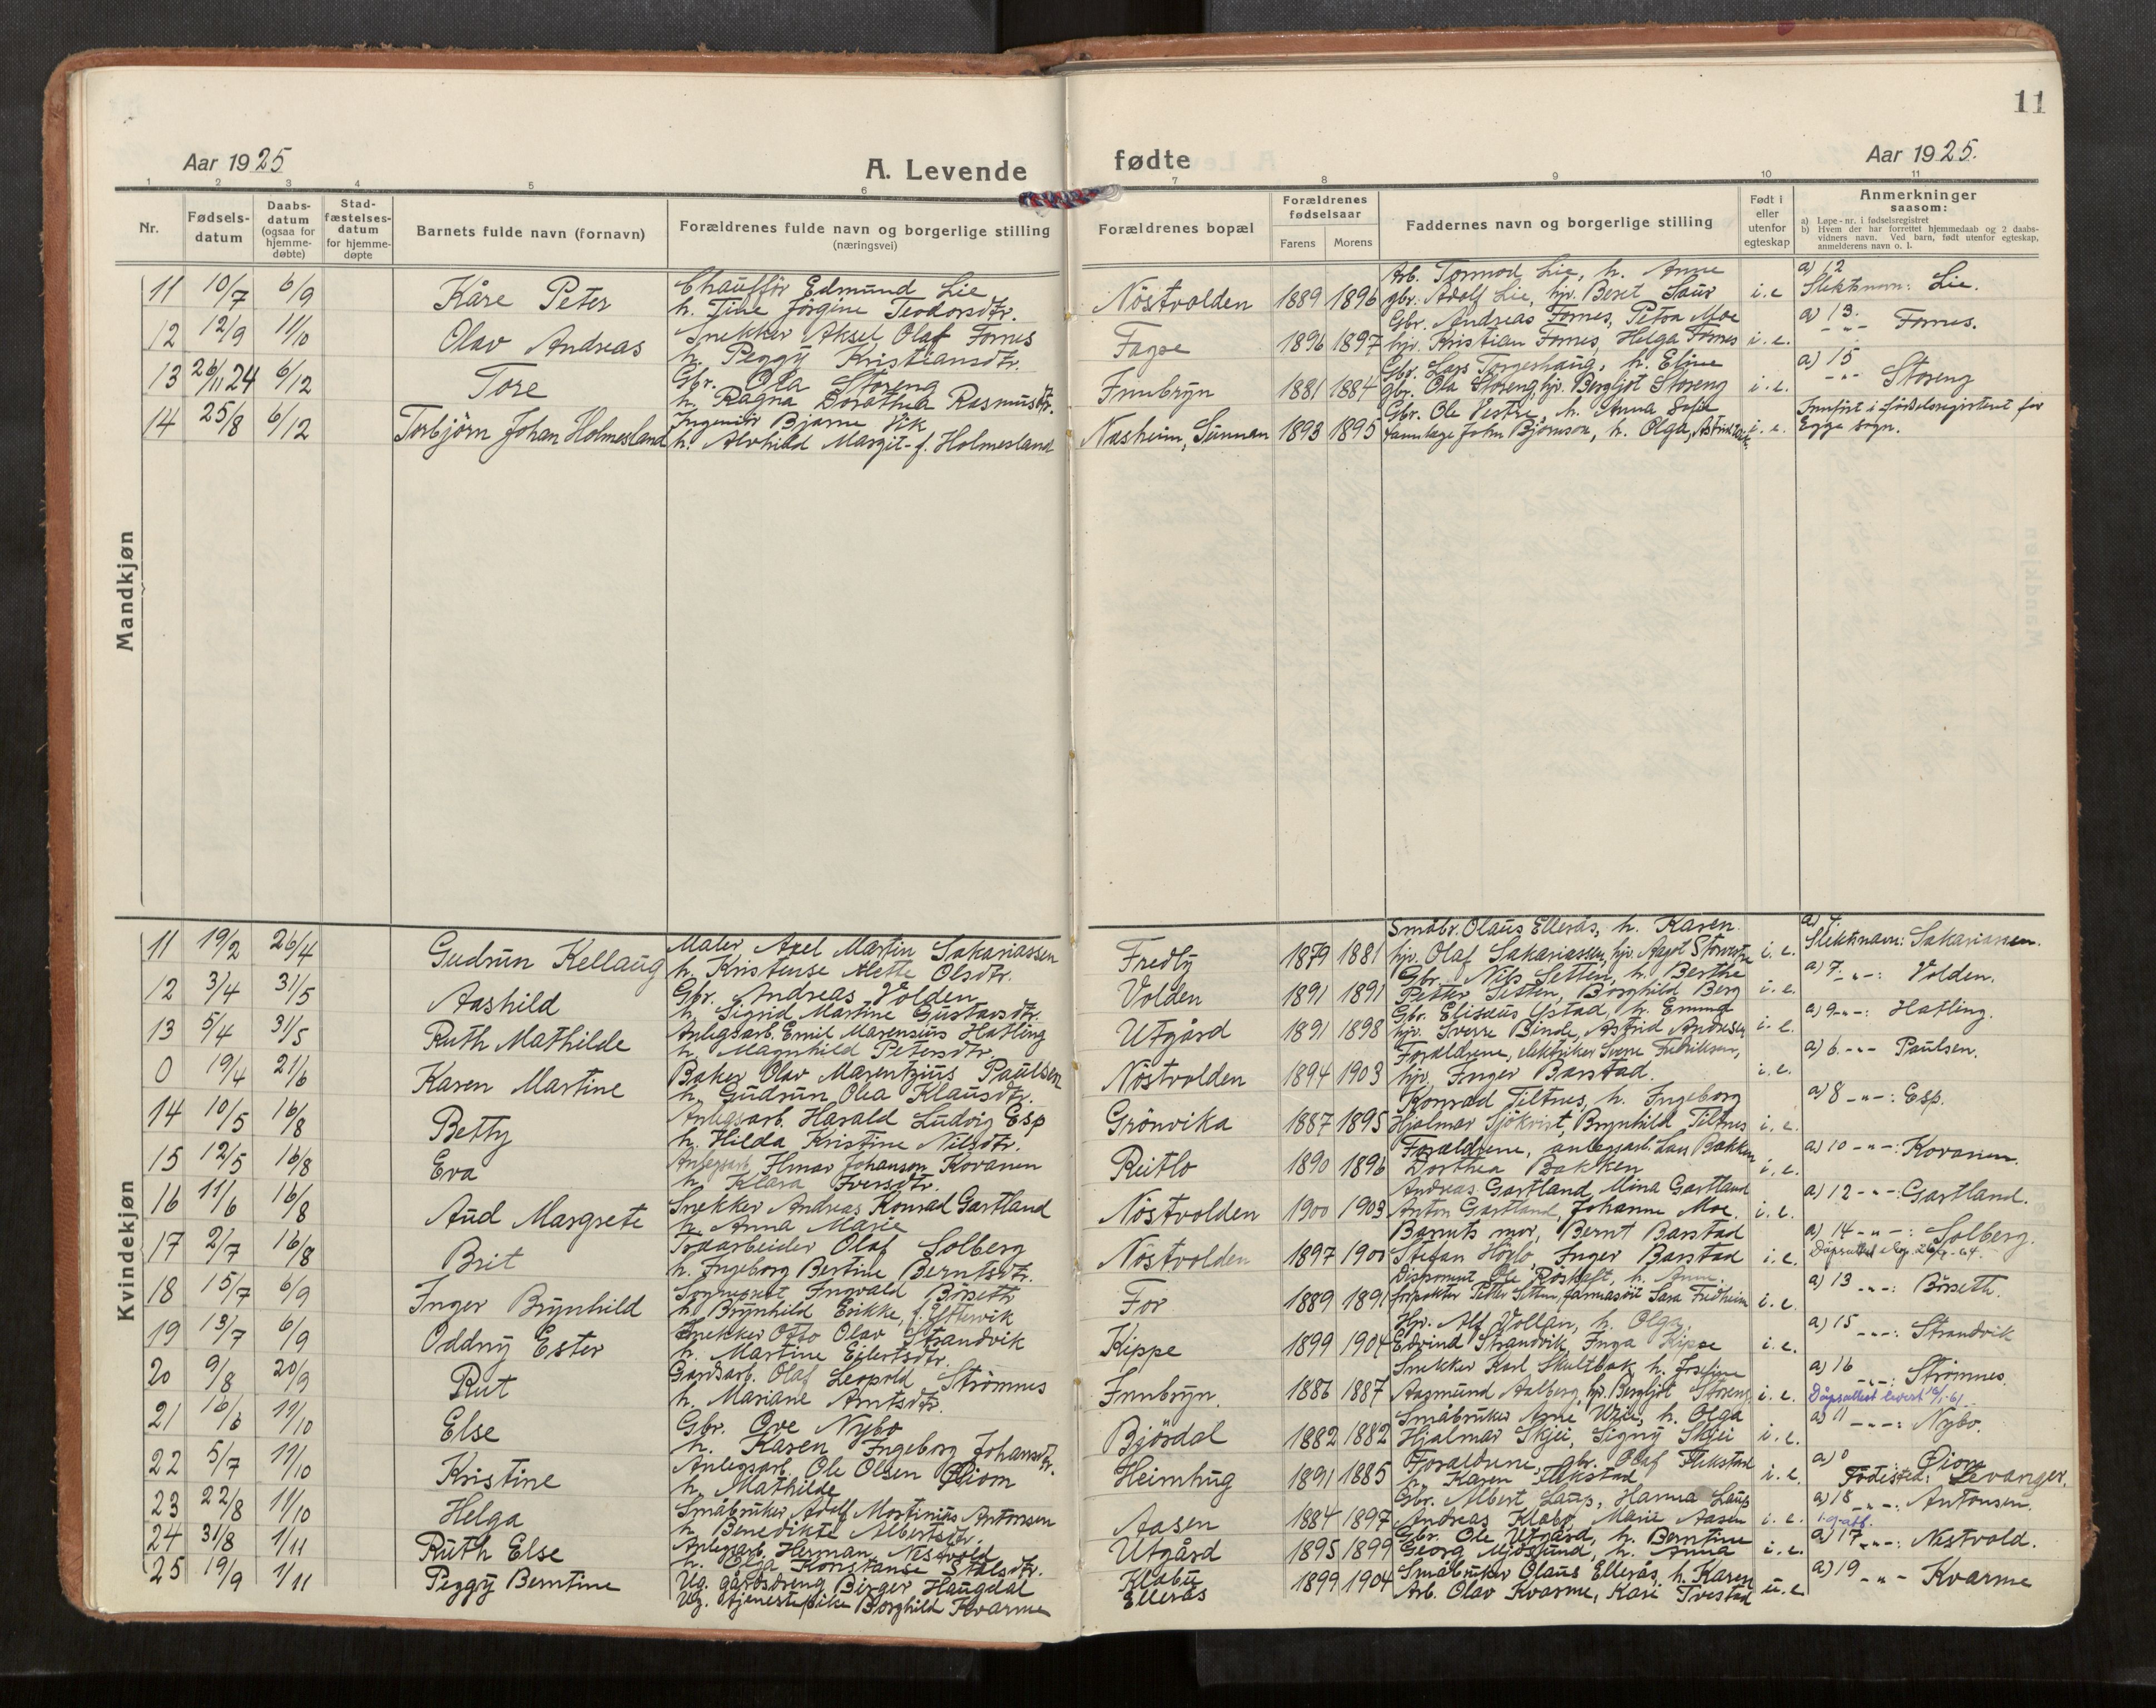 11
Aar 1925
A. Levende fødte
Aar 1925.
1 2 3 4 5 6 7 8 9 10 11
Nr.
Fødsels-datum
Daabs-datum (ogsaa for hjemme-døbte)
Stad-fæstelses-datum for hjemme-døpte
Barnets fulde navn (fornavn)
Forældrenes fulde navn og borgerlige stilling (næringsvei)
Forældrenes bopæl
Forældrenes fødselsaar
Farens Morens
Faddernes navn og borgerlige stilling
Født i eller utenfor egteskap
Anmerkninger saasom:
a) Løpe-nr. i fødselsregistret
b) Hvem der har forrettet hjemmedaab og 2 daabs-vidners navn. Ved barn, født utenfor egteskap, anmelderens navn o. l.
Mandkjøn
11 10/7 6/9 Kåre Peter Chauffør Edmund Lie
h. Tine Jörgine Teodorsdtr.
Nöstvolden 1889 1896 Arb. Tormod Lie, h. Anne
gbr. Adolf Lie, hjv. Beret Saur i.e
a) 12
Slektsnavn: Lie.
12 12/9 11/10 Olav Andreas Snekker Aksel Olaf Fornes
h. Peggy Kristiansdtr.
Fagse 1896 1897 Gbr. Andreas Fornes, Petra Moe
hjv. Kristian Fornes, Helga Fornes i.e.
a) 13.
-"- Fornes.
13 26/11 24 6/12 Tore Gbr. Ola Storeng
h. Ragna Dorothea Rasmusdtr.
Innbryn 1881 1884 Gbr. Lars Torgeshaug, h. Eline
gbr. Ola Storeng, hjv. Bergljot Storeng i.e.
a) 15
-"- Storeng
14 25/8 6/12 Torbjörn Johan Holmesland Ingeniör Bjarne Vik
h. Alvhild Margit f. Holmesland
Næsheim, Sunnan 1893 1895 Gbr. Ole Vestre, h. Anna Sofie
tannlæge John Björnson, h. Olga, Astrid i.e.
Innfört i födselsregisteret for
Egge sogn.
Kvindekjøn
11 19/2 26/4 Gudrun Kellaug Maler Axel Martin Sakariassen
h. Kristense Alette Olsdtr.
Fredly 1879 1881 Småbr. Olaus Ellerås, h. Karen
hjv. Olaf Sakariassen, hjv. Aagot i.e.
Slektsnavn: Sakariassen.
12 3/4 31/5 Aashild Gbr. Andreas Volden
h. Sigrid Martine Gustavsdtr.
Volden 1891 1891 Gbr. Nils Setten, h. Berthe
Petter Setten, Borghild Berg i.e.
a) 7. -"-: Volden.
13 5/4 31/5 Ruth Mathilde Anlegsarb. Emil Marensius Hatling
h. Magnhild Petersdtr.
Utgård 1891 1898 Gbr. Elisæus Ystad, h. Emma
hjv. Sverre Binde, Astrid Andresen i.e.
a) 9 -"-: Hatling.
0 19/4 21/6 Karen Martine Baker Olav Marentzius Paulsen
h. Gudrun Olea Klausdtr.
Nöstvolden 1894 1903 Foreldrene, elektriker Sverre Fredriksen,
hjv. Inger Barstad. i.e.
a) 6. -"- Paulsen.
14 10/5 16/8 Betty Anlegsarb. Harald Ludvig Esp
h. Hilda Kristine Nilsdtr.
Grönvika 1887 1895 Konrad Tiltnes, h. Ingeborg
Hjalmar Sjökvist, Brynhild Tiltnes i.e.
a) 8 -"-: Esp.
15 12/5 16/8 Eva Anlegsarb. Ilmar Johanson Kovanen
h. Klara Iversdtr.
Rutlo 1890 1896 Foreldrene, anlegsarb. Lars Bakken
Dorthea Bakken i.e.
a) 10 -"-: Kovanen.
16 11/6 16/8 Aud Margrete Snekker Andreas Konrad Gartland
h. Anna Marie
Nöstvolden 1900 1903 Andreas Gartland, Mina Gartland
Anton Gartland, Johanne Moe. i.e.
a) 12 -"-: Gartland.
17 2/7 16/8 Brit Olaf Solberg
h. Ingeborg Bertine Berntsdtr.
Nöstvolden 1897 1900 Barnets mor, Bernt Barstad
Stefan Höylo, Inger Barstad i.e.
a) 14 -"-: Solberg.
18 15/7 6/9 Inger Brynhild Sogneprest Ingvald Börseth
h. Brynhild Erikke, f. Yttervik
For 1889 1891 Disponent Ole Röskaft, h. Anne.
inspektør Petter Setten, farmasöit Sara Fredheim i.e.
a) 13 -"-: Börseth.
19 13/7 6/9 Oddny Ester Snekker Otto Olav Strandvik
h. Martine Eilertsdtr.
Kippe 1899 1904 Hpr. Alf Vollan, h. Olga.
Edvind Strandvik, Inga Kippe i.e.
a) 15 -"-: Strandvik
20 9/8 20/9 Rut Gårdsarb. Olaf Leopold Strömnes
h. Mariane Arntsdtr.
Innbryn. 1886 1887 Snekker Karl Skultbak, h. Josefine
Aagmund Aalberg, hjv. Bergljot Storeng i.e.
a) 16 -"-: Strömnes.
Dåpsattest levert 16/1-61.
21 16/6 11/10 Else Gbr. Ove Nybo
h. Karen Ingeborg Johansdtr.
Björdal 1882 1882 Småbruker Arne h. Olga
Hjalmar Skjei, Signy Skjei i.e.
a) 11 -"-: Nybo.
22 5/7 11/10 Kristine Anlegsarb. Ole Olsen Öiom
h. Mathilde
Heimhug 1891 1885 Foreldrene, gbr. Olaf Flekstad
h. Karen Flekstad i.e.
a) 0 Öiom
Födested: Levanger.
23 22/8 11/10 Helga Småbruker Adolf Mortinius Antonsen
h. Benedikte Albertsdtr.
Aasen 1884 1897 Gbr. Albert Laup, Hanna Laup
Andreas Klobo, Marie Aasen i.e.
a) 18 -"-: Antonsen.
24 31/8 1/11 Ruth Else Anlegsarb. Herman Nestvold
h. Olga Konstanse
Utgård 1895 1899 Gbr. Ole Utgård, h. Berntine
Georg Mjösund, h. Anna i.e.
a) 17 -"-: Nestvold.
25 19/9 1/11 Peggy Berntine Ug. gårdsdreng Birger Haugdal
Ug. tjenestepike Borghild Kvarme
Klobu
Ellerås 1899 1904 Småbruker Olaus Ellerås, h. Karen
Arb. Olav Kvarme, Kari Tvestad u.e
a) 19 -"- Kvarme